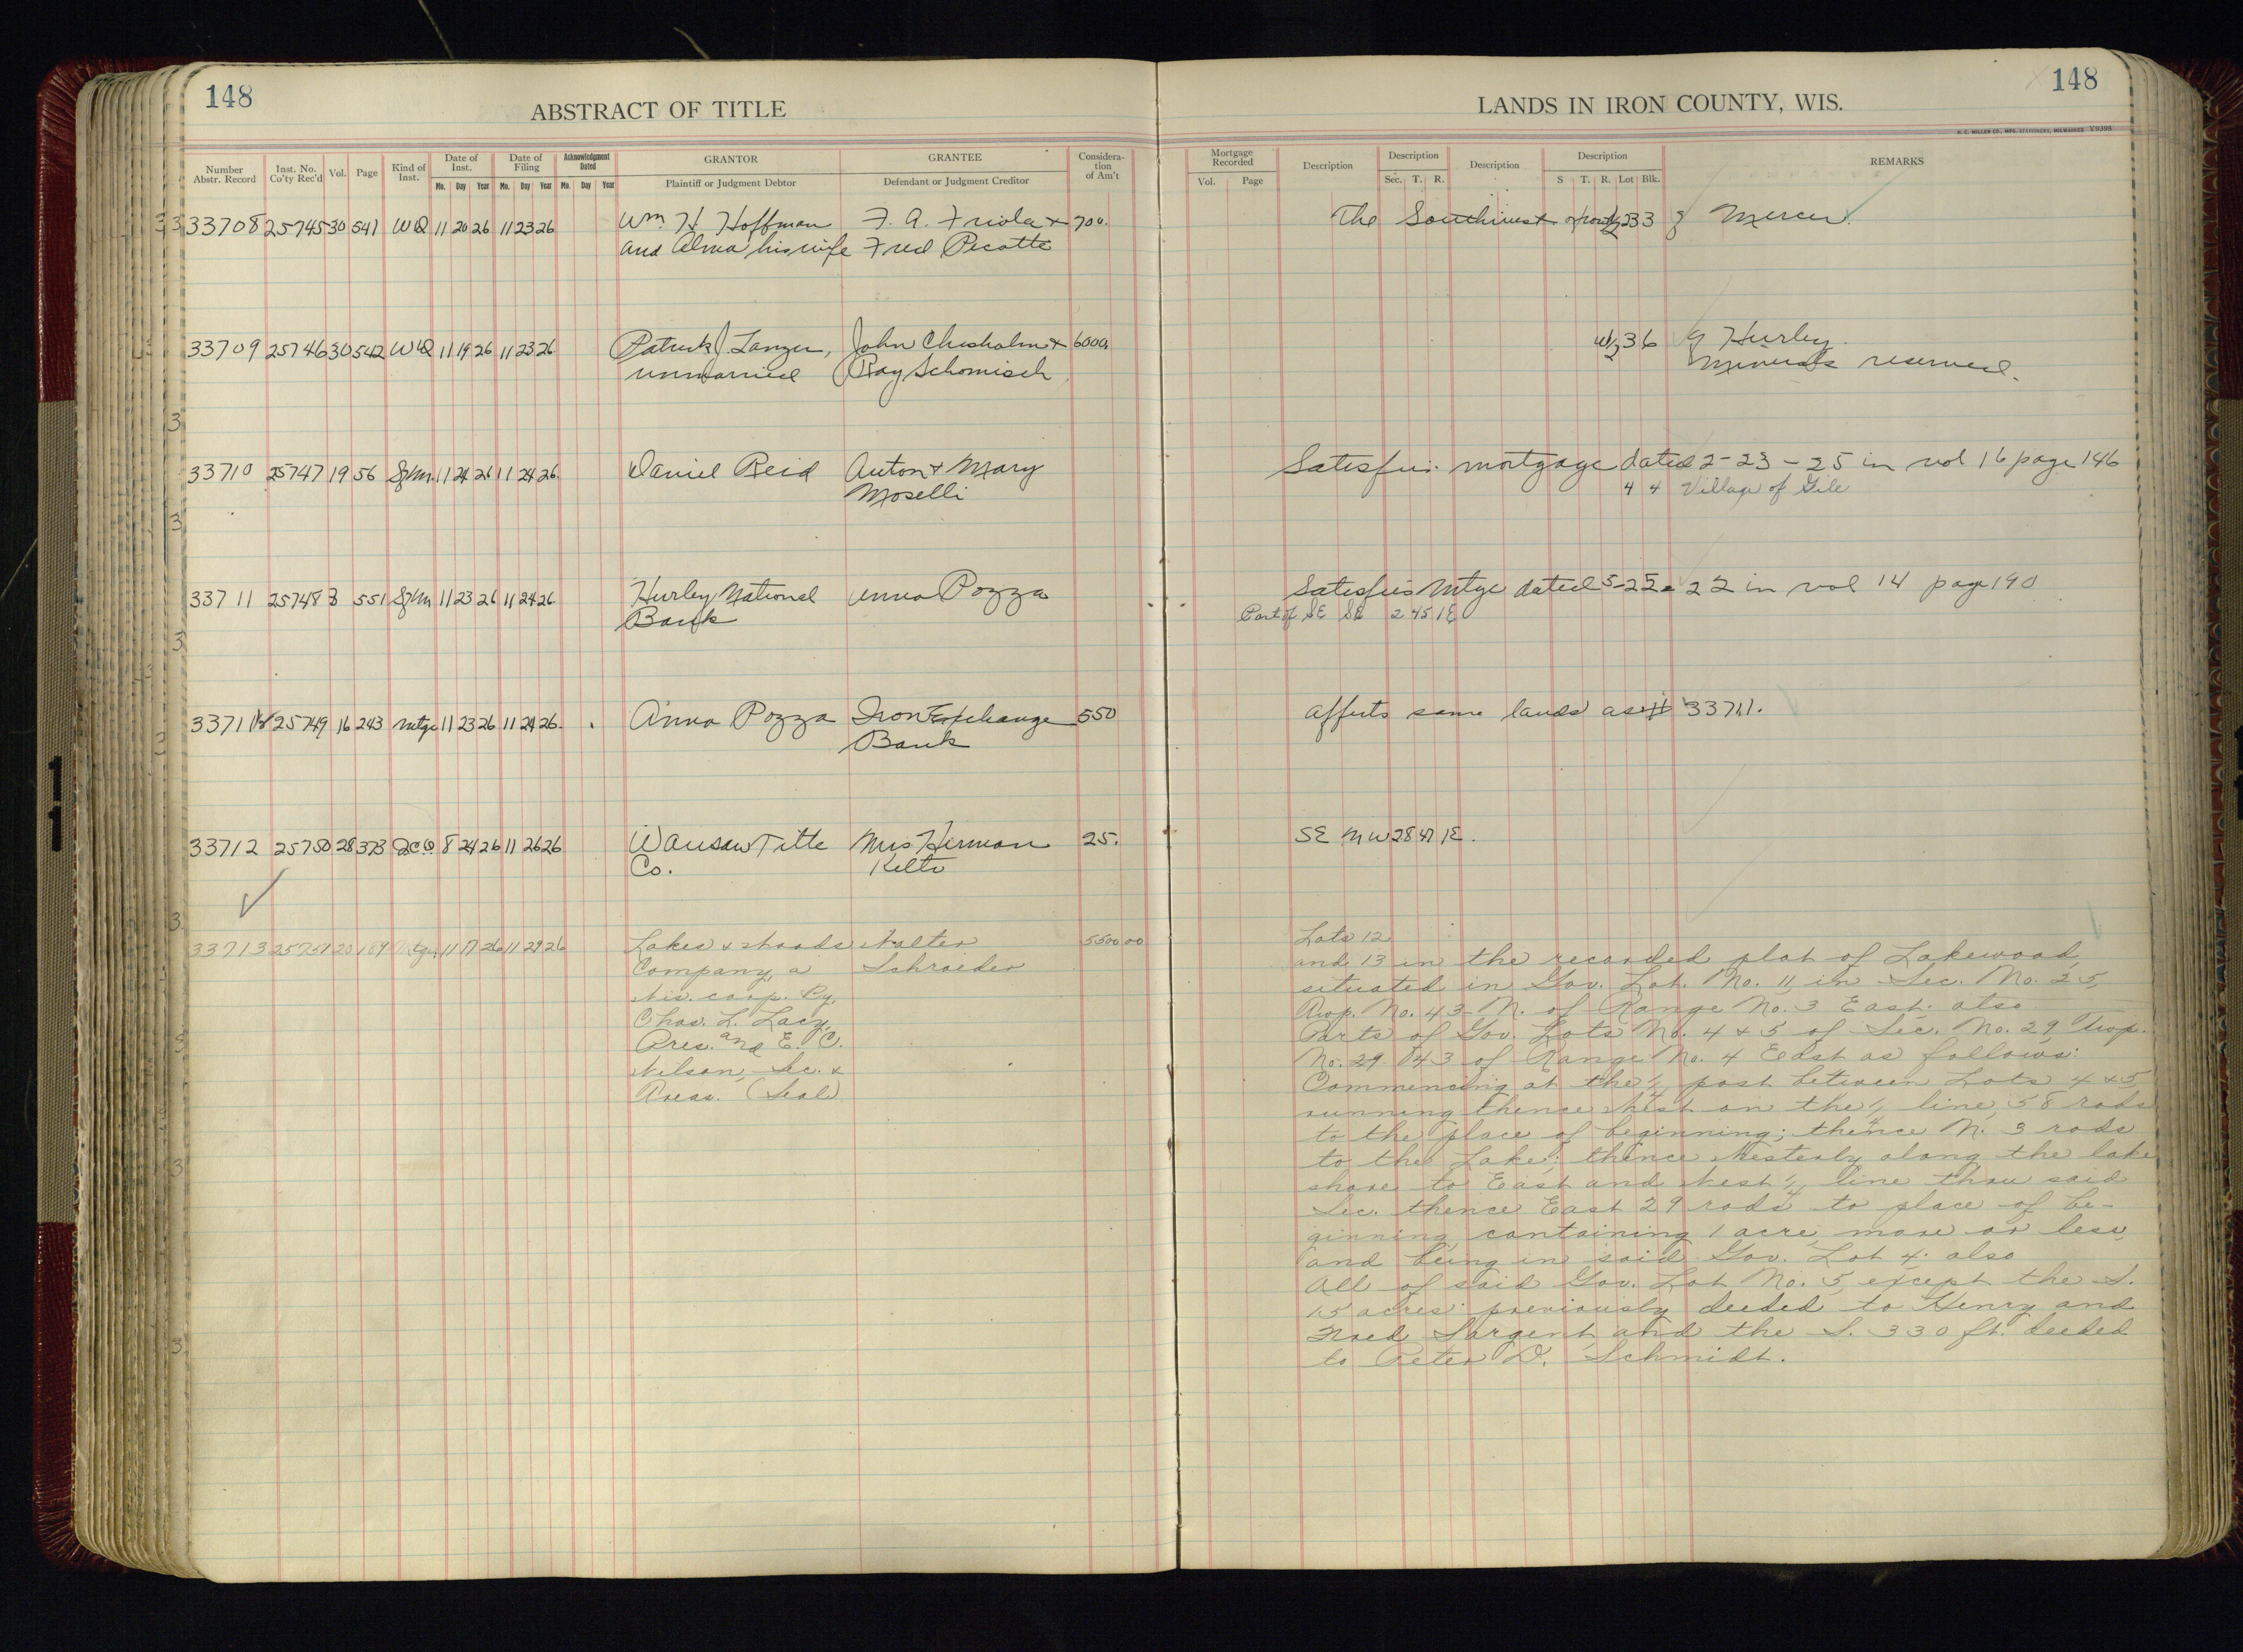 148
148
ABSTRACT OF TITLE
LANDS IN IRON COUNTY, WIS.
H. C. MILLER CO., MFG. STATIONERS, MILWAUKEE Y9398
Number Abstr. Record
Inst. No. Co'ty Rec'd
Vol.
Page
Kind of Inst.
Date of Inst.
Mo. Day Year
Date of Filing
Mo. Day Year
Acknowledgment Dated
Mo. Day Year
GRANTOR
Plaintiff or Judgment Debtor
GRANTEE
Defendant or Judgment Creditor
Considera-tion of Am't
Mortgage Recorded
Vol. Page
Description
Description
Sec. T. R.
Description
Description
S T. R. Lot Blk.
REMARKS
33708 25745 30 541 WD 11 20 26 11 23 26 Wm. H Hoffman F. A. Friola + 700. The Southwest 33 Mercer.
and Alma his wife Fred Picotte
33709 25746 30 542 WD 11 19 26 11 23 26 Patrick J. Lanzer, John Chisholm + 6000. W½ 3 6 Hurley.
unmarried Ray Schomisch Minerals reserved.
33710 25747 19 56 11 24 26 11 24 26 Daniel Reid Anton + Mary Satisfies mortgage dated 2-23-25 in vol 16 page 146
Moselli 4 4 Village of Gile
33711 25748 8 551 11 23 26 11 24 26 Hurley National Anna Pozza Satisfies Mtge dated 5-25-22 in vol 14 page 190
Bank Part of SE SE 2 45 1E
33711½ 25749 16 243 Mtge 11 23 26 11 24 26. Anna Pozza Iron Exchange 550 Affects same lands as # 33711.
Bank
33712 25750 28 373 QCD 8 24 26 11 26 26 Wausau Title Mrs Herman 25. SE NW 28 47 1E.
Co. Kelto
33713 25751 20 189 Mtge. 11 17 26 11 29 26 Lakes & Woods Walter 5500 00 Lots 12
Company, a Schroeder and 13 in the recorded plat of Lakewood,
Wis. corp. By, situated in Gov. Lot. No. 11, in Sec. No. 25,
Chas. L. Lacy, Twp. No. 43 N. of Range No. 3 East. also
Pres. and E. C. Parts of Gov. Lots No. 4 & 5 of Sec. No. 29, Twp.
Nilson, Sec. & No. 29 43 of Range No. 4 East as follows:
Treas. (Seal) Commencing at the ¼ post between Lots 4 & 5
running thence West on the ¼ line, 58 rods
to the place of beginning; thence N. 3 rods
to the Lake; thence Westerly along the lake
shore to East and West ¼ line thru said
Sec. thence East 29 rods to place of be-
ginning, containing 1 acre, more or less,
and being in said Gov. Lot 4; also
All of said Gov. Lot No. 5, except the S.
15 acres previously deeded to Henry and
Fred Sargent, and the S. 330 ft. deeded
to Peter D. Schmidt.